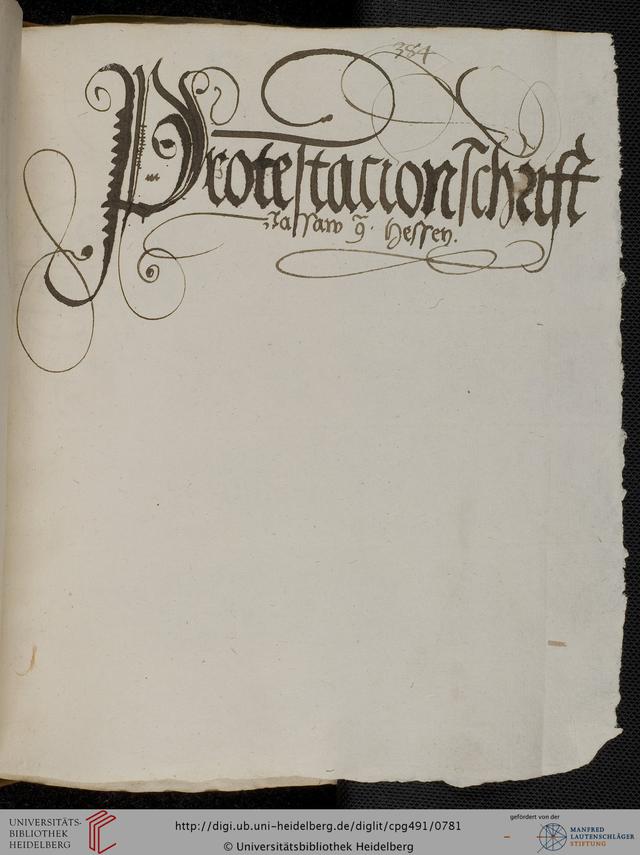 384
Protestacionschrifft
Nassaw g. Hessen.
UNIVERSITÄTS-
BIBLIOTHEK
HEIDELBERG
http://digi.ub.uni-heidelberg.de/diglit/cpg491/0781
© Universitätsbibliothek Heidelberg
gefördert von der
MANFRED
LAUTENSCHLÄGER
STIFTUNG